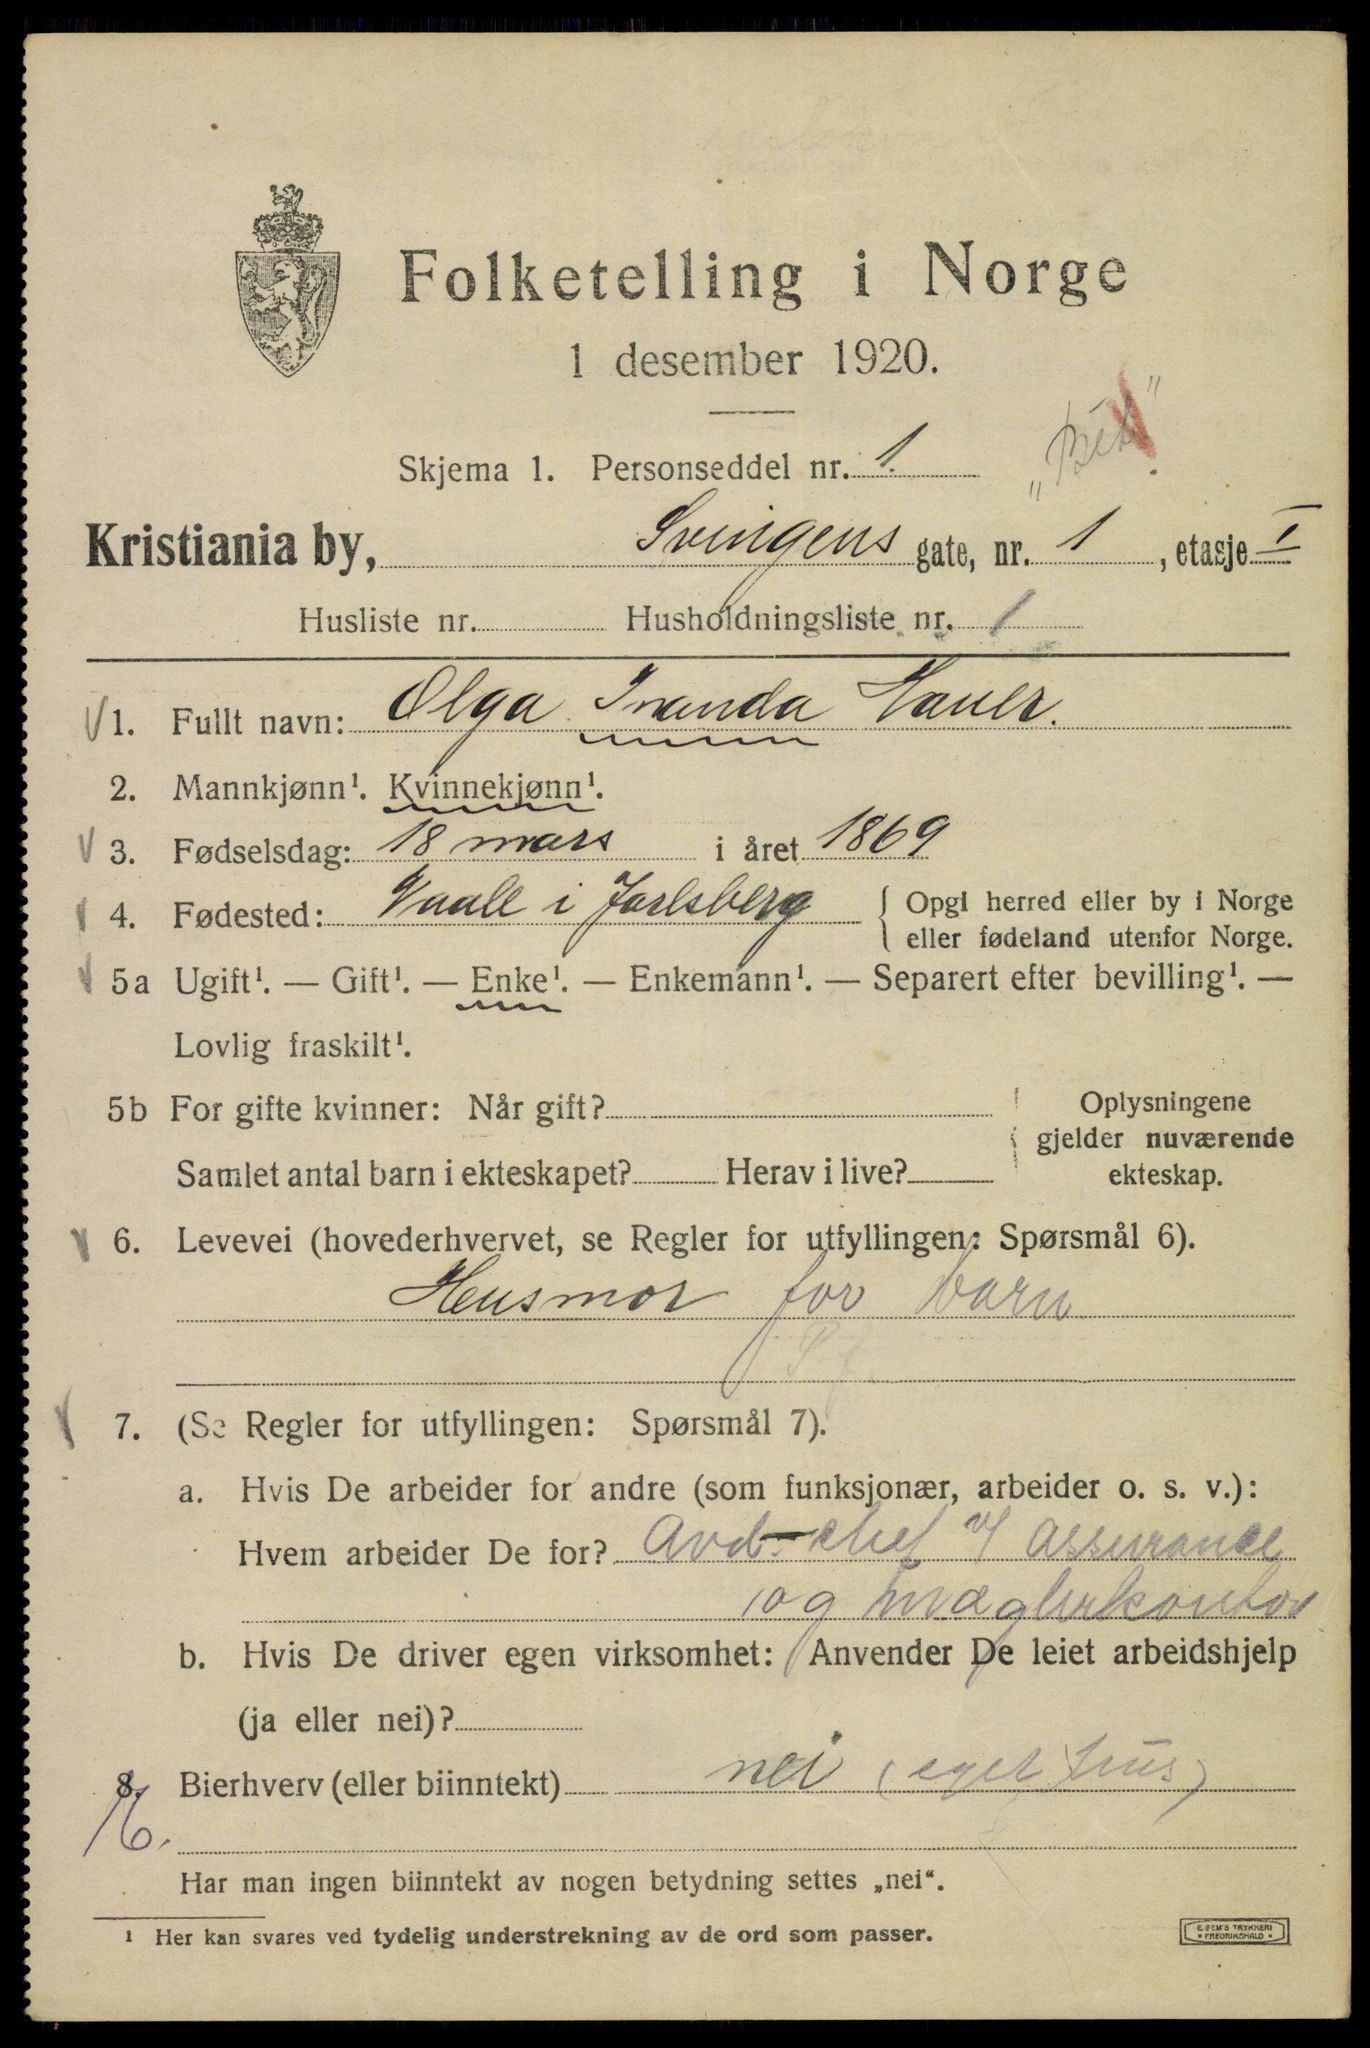 Folketelling i Norge
1 desember 1920.
Skjema 1. Personseddel nr. 1.
Kristiania by, Svingens gate, nr. 1, etasje I
Husliste nr. Husholdningsliste nr. 1
1. Fullt navn: Olga Inanda Hauer.
2. Mannkjønn¹. Kvinnekjønn¹.
3. Fødselsdag: 18 mars i året 1869
4. Fødested: Vaale i Jarlsberg { Opgi herred eller by i Norge
eller fødeland utenfor Norge.
5a Ugift¹. — Gift¹. — Enke¹. — Enkemann¹. — Separert efter bevilling¹. —
Lovlig fraskilt¹.
5b For gifte kvinner: Når gift?
Oplysningene
gjelder nuværende
ekteskap.
Samlet antal barn i ekteskapet? Herav i live?
6. Levevei (hovederhvervet, se Regler for utfyllingen: Spørsmål 6).
Husmor for barn
7. (Se Regler for utfyllingen: Spørsmål 7).
a. Hvis De arbeider for andre (som funksjonær, arbeider o. s. v.):
Hvem arbeider De for? Avd.-chef v/ assurance
og mæglerkontor
b. Hvis De driver egen virksomhet: Anvender De leiet arbeidshjelp
(ja eller nei)?
8. Bierhverv (eller biinntekt) nei (eget hus)
Har man ingen biinntekt av nogen betydning settes „nei“.
¹ Her kan svares ved tydelig understrekning av de ord som passer.
E. SEM'S TRYKKERI
FREDRIKSHALD